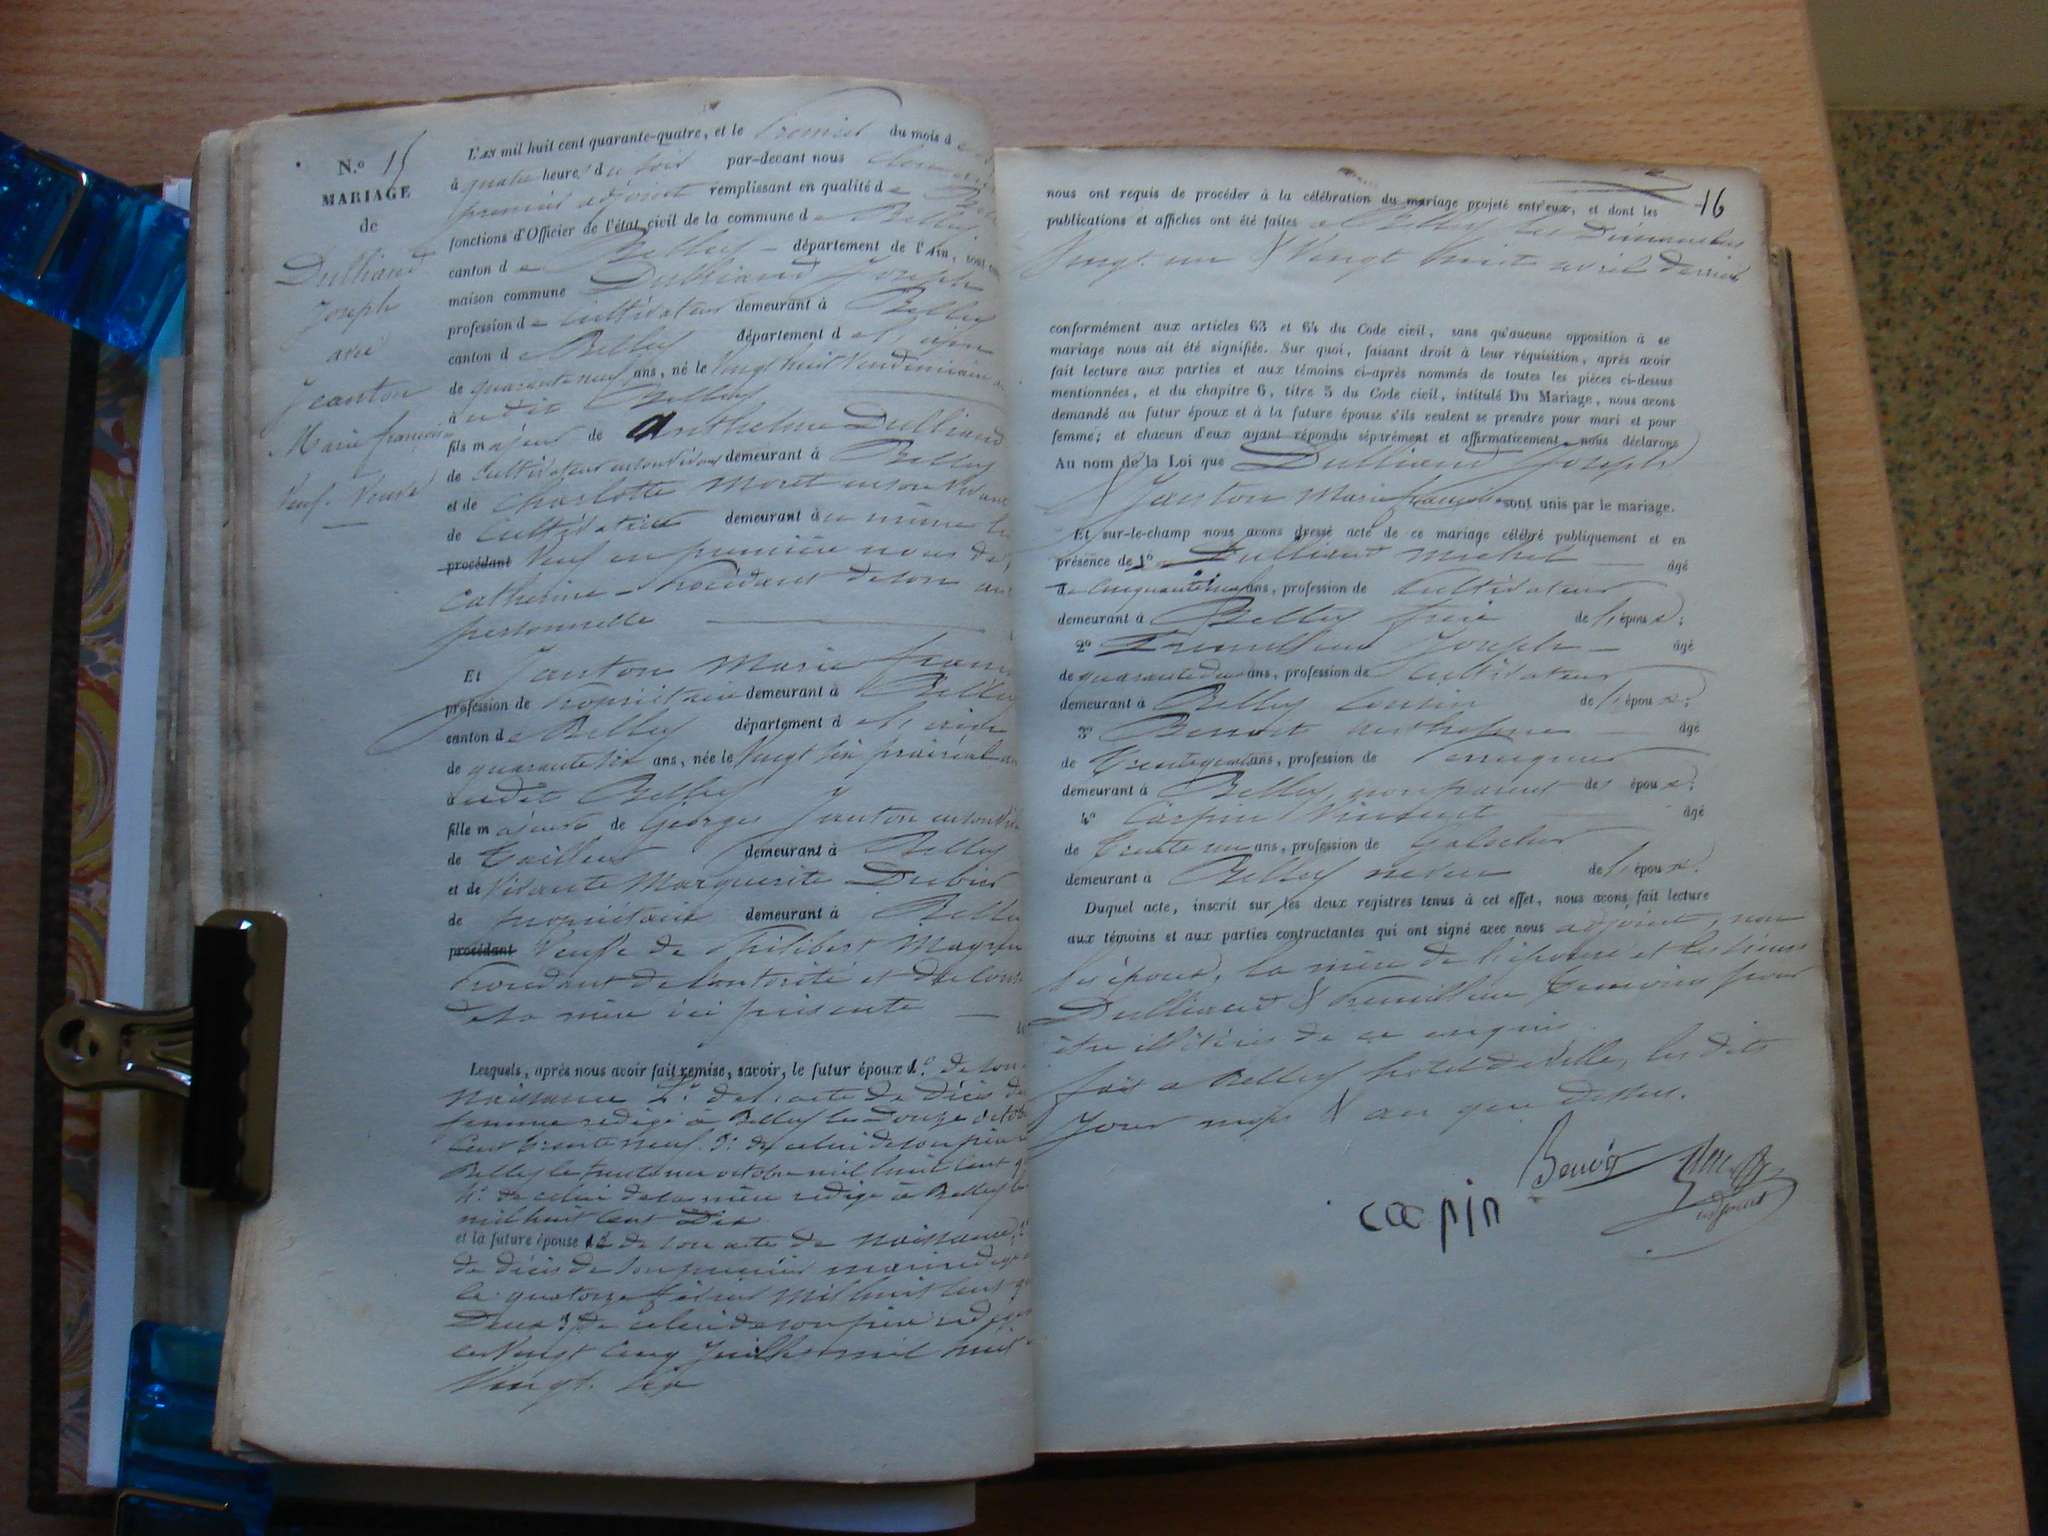 N.o 15
MARIAGE
de
Dulliand
Joseph
avec
Jeanton
Marie françoise
Veuf. Veuve
L'AN mil huit cent quarante-quatre, et le Premier du mois d
à quatre heure, du soir par-devant nous
premier adjoint remplissant en qualité de
fonctions d'Officier de l'état civil de la commune de Belley
canton de Belley département de l'Ain, sont
maison commune Dulliand Joseph
profession de cultivateur demeurant à Belley
canton de Belley département de l'ain
de quarante neuf ans, né le Vingt huit Vendémiaire an
à udit Belley
fils majeur de anthelme Dulliand
de Cultivateur en son vivant demeurant à Belley
et de Charlotte Moret en son vivant
de Cultivatrice demeurant à u même
procédant Veuf en première noces de
Catherine Procédant de son
personnelle
Et Janton Marie
profession de Propriétaire demeurant à Belley
canton de Belley département de l'ain
de quarante six ans, née le Vingt six prairial an
audit Belley
fille majeure de Georges Janton en son
de Tailleur demeurant à Belley
et de Vivante Marguerite Dubier
de propriétaire demeurant à Belley
procédant Veuve de Philibert
Procédant de l'autorité et du
de sa mère ici présente
Lesquels, après nous avoir fait remise, savoir, le futur époux 1.° de son
Naissance 2.° de l'acte de Décès de
femme rédigé à Belley le Douze
Cent trente neuf. 3.° de celui de son père
Belley le trente un octobre mil huit Cent
4.° de celui de sa mère rédigé à Belley le
mil huit Cent Dix
et la future épouse 1.° de son acte de Naissance, 2.°
de décès de son premier mari rédigé
le quatorze février Mil huit Cent
Deux 3.° de celui de son père rédigé
le Vingt Cinq Juillet mil huit
Vingt. six
16
nous ont requis de procéder à la célébration du mariage projeté entr'eux, et dont les
publications et affiches ont été faites a Belley les Dimanches
Vingt un & Vingt huit avril dernier
conformément aux articles 63 et 64 du Code civil, sans qu'aucune opposition à ce
mariage nous ait été signifiée. Sur quoi, faisant droit à leur réquisition, après avoir
fait lecture aux parties et aux témoins ci-après nommés de toutes les pièces ci-dessus
mentionnées, et du chapitre 6, titre 5 du Code civil, intitulé Du Mariage, nous avons
demandé au futur époux et à la future épouse s'ils veulent se prendre pour mari et pour
femme; et chacun d'eux ayant répondu séparément et affirmativement nous déclarons
Au nom de la Loi que Dulliand Joseph
& Janton Marie françoise sont unis par le mariage.
Et sur-le-champ nous avons dressé acte de ce mariage célébré publiquement et en
présence de 1° Dulliand Michel âgé
de Cinquante ans, profession de Cultivateur
demeurant à Belley frère de l'époux;
2° Joseph âgé
de quarante deux ans, profession de Cultivateur
demeurant à Belley Cousin de l'époux;
3° Benoit anthelme âgé
de Trente quatre ans, profession de Perruquier
demeurant à Belley non parent des époux;
4° Carpin Vincent âgé
de Trente un ans, profession de
demeurant à Belley neveu de l'époux.
Duquel acte, inscrit sur les deux registres tenus à cet effet, nous avons fait lecture
aux témoins et aux parties contractantes qui ont signé avec nous adjoint, non
les époux, la mère de l'épouse et les sieurs
Dulliand & témoins pour
être illétérés de ce enquis
fait a Belley hotel de Ville, les dits
Jour mois & an que dessus.
Benoit
carpin
adjoint